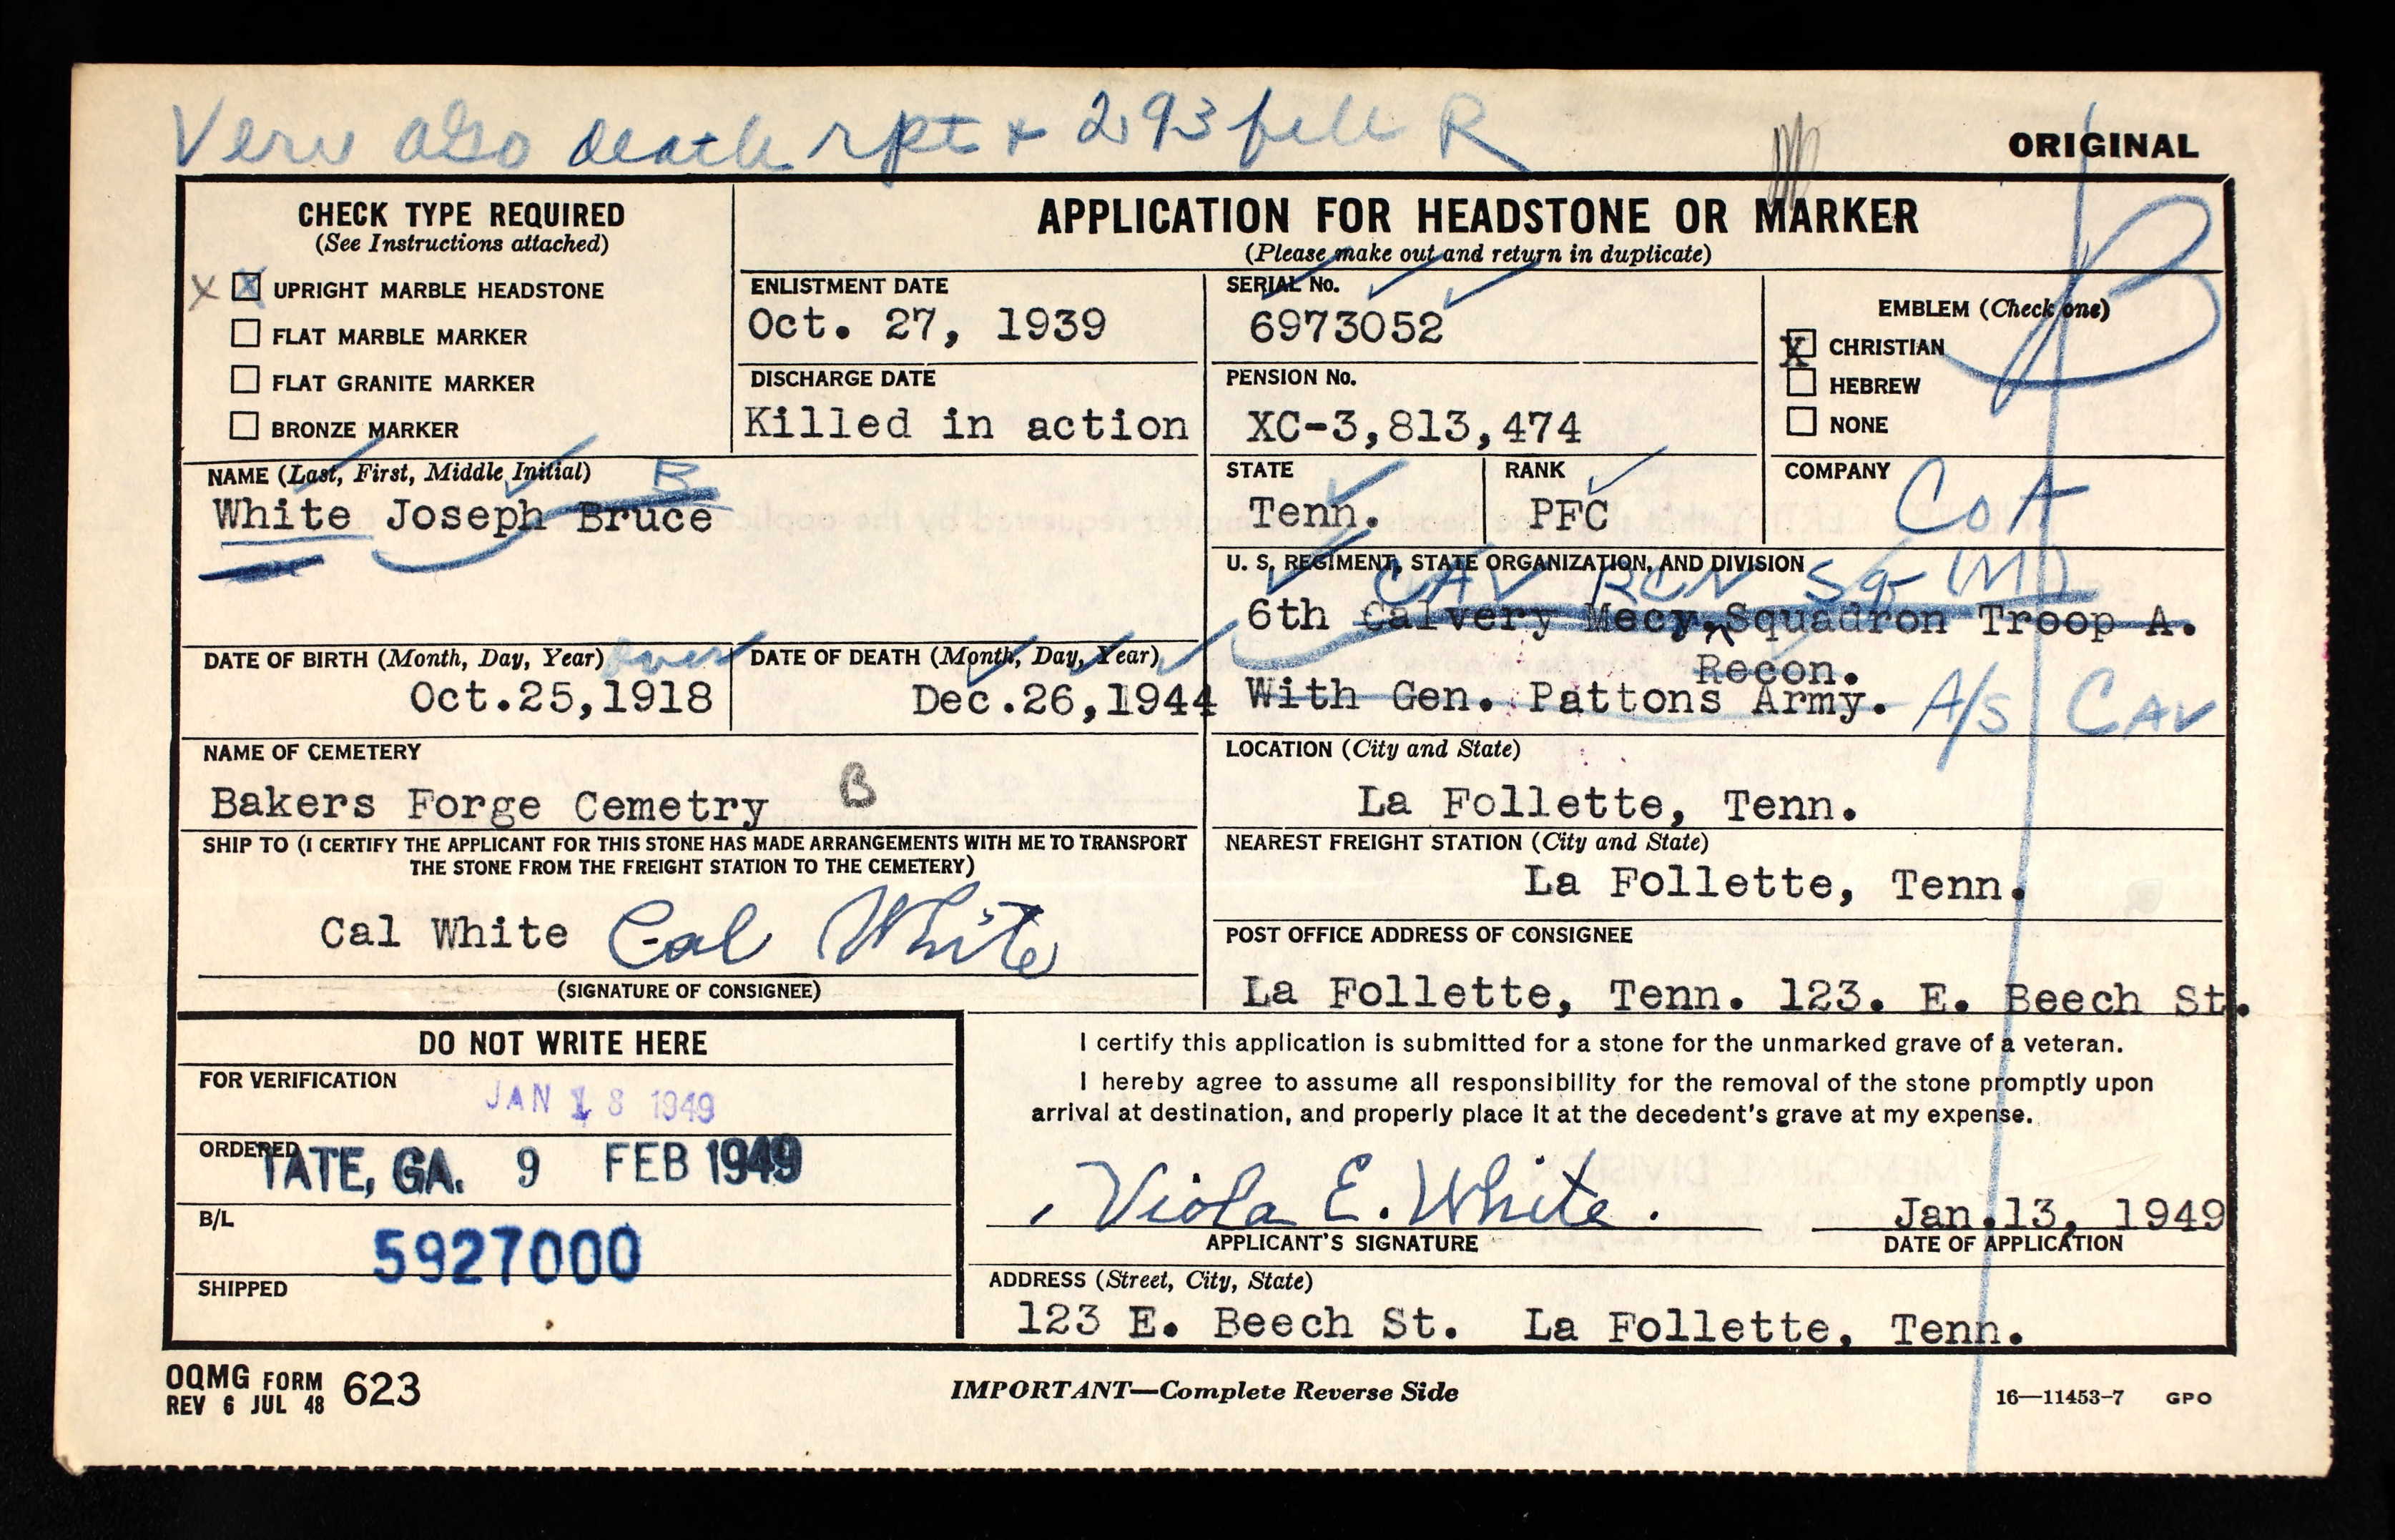 Veri also death rpt + 293 R
ORIGINAL
CHECK TYPE REQUIRED
(See Instructions attached)
X X UPRIGHT MARBLE HEADSTONE
FLAT MARBLE MARKER
FLAT GRANITE MARKER
BRONZE MARKER
APPLICATION FOR HEADSTONE OR MARKER
(Please make out and return in duplicate)
ENLISTMENT DATE
Oct. 27, 1939
SERIAL No.
6973052
DISCHARGE DATE
Killed in action
PENSION No.
XC-3,813,474
EMBLEM (Check one)
X CHRISTIAN
HEBREW
NONE
B
NAME (Last, First, Middle Initial)
B
White Joseph Bruce
STATE
Tenn.
RANK
PFC
COMPANY
Co A
U. S. REGIMENT, STATE ORGANIZATION, AND DIVISION
CAV RCN Sq (M)
6th Calvery Mecy, Squadron Troop A.
Recon.
With Gen. Pattons Army. A/S CAV
DATE OF BIRTH (Month, Day, Year) over
Oct.25,1918
DATE OF DEATH (Month, Day, Year)
Dec.26,1944
NAME OF CEMETERY
Bakers Forge Cemetry B
LOCATION (City and State)
La Follette, Tenn.
SHIP TO (I CERTIFY THE APPLICANT FOR THIS STONE HAS MADE ARRANGEMENTS WITH ME TO TRANSPORT
THE STONE FROM THE FREIGHT STATION TO THE CEMETERY)
Cal White Cal White
(SIGNATURE OF CONSIGNEE)
NEAREST FREIGHT STATION (City and State)
La Follette, Tenn.
POST OFFICE ADDRESS OF CONSIGNEE
La Follette, Tenn. 123. E. Beech St.
DO NOT WRITE HERE
FOR VERIFICATION
JAN 18 1949
ORDERED
TATE, GA. 9 FEB 1949
B/L
5927000
SHIPPED
I certify this application is submitted for a stone for the unmarked grave of a veteran.
I hereby agree to assume all responsibility for the removal of the stone promptly upon
arrival at destination, and properly place it at the decedent's grave at my expense.
Viola E. White.
Jan.13, 1949
APPLICANT'S SIGNATURE
DATE OF APPLICATION
ADDRESS (Street, City, State)
123 E. Beech St. La Follette, Tenn.
OQMG FORM 623
REV 6 JUL 48
IMPORTANT—Complete Reverse Side
16—11453-7 GPO